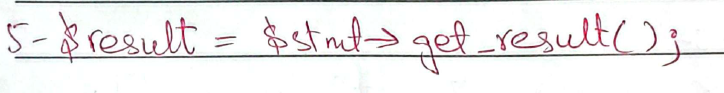 5- $result = $stmt->get_result();